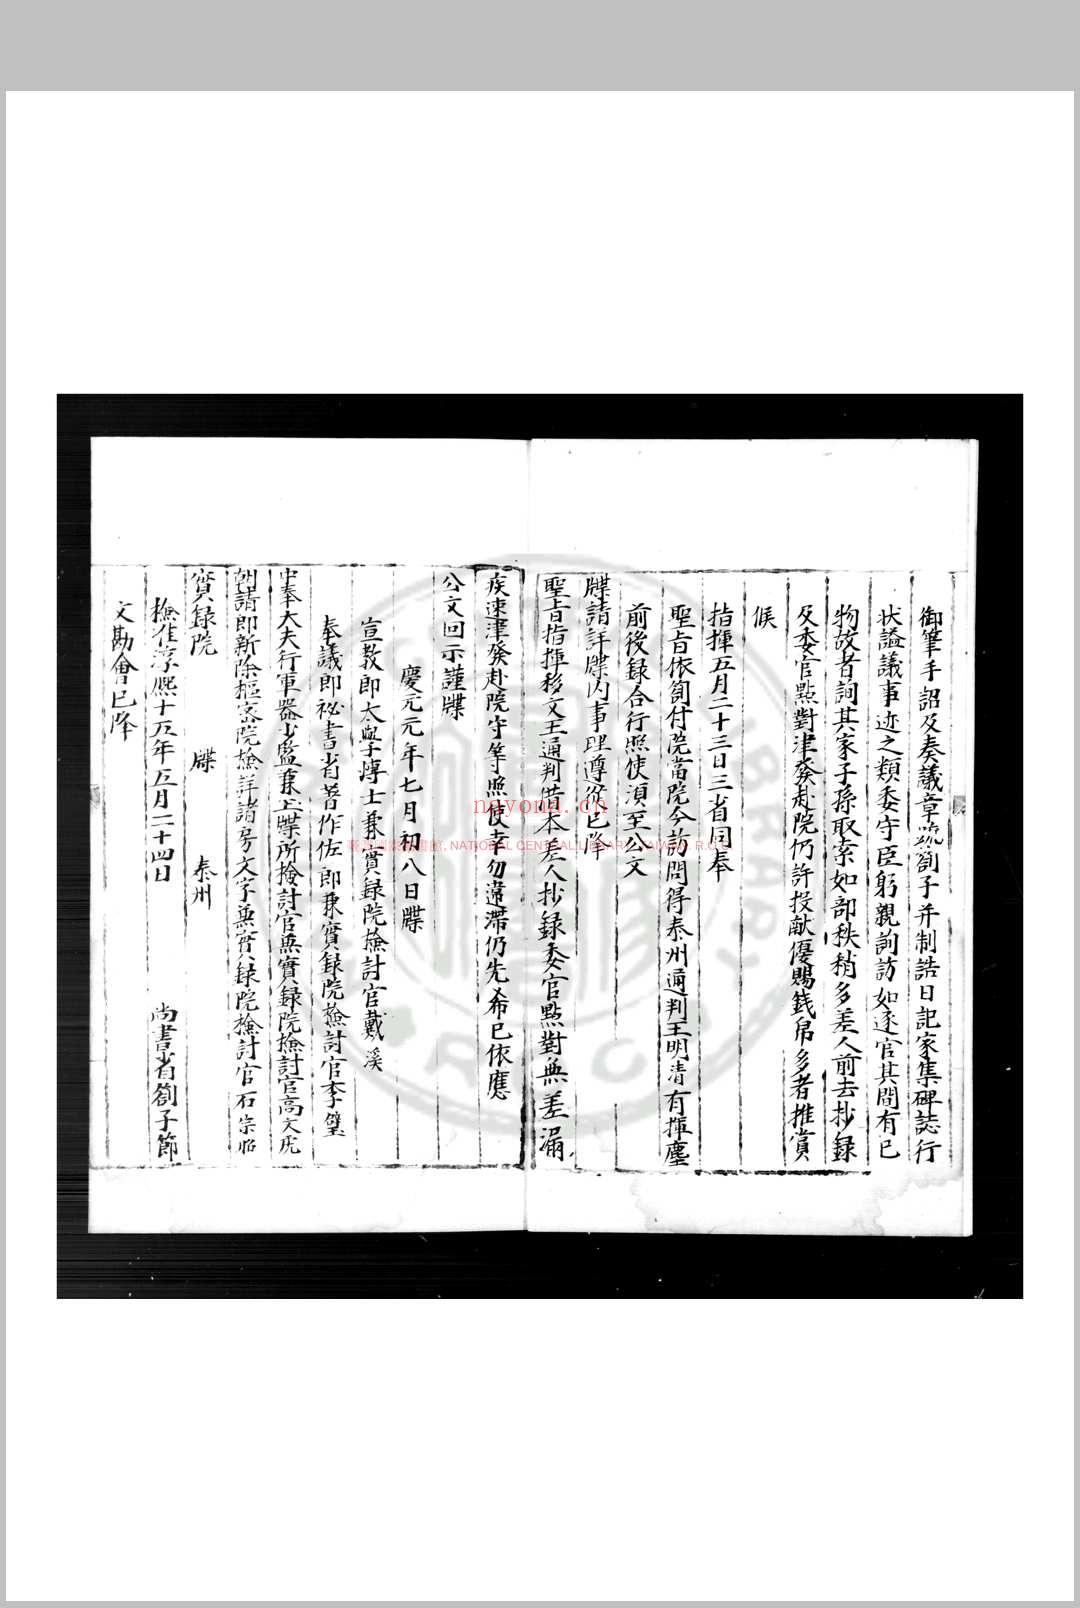 御筆手詔及奏議章疏劄子并制誥日記家集碑誌行
状謚議事迹之類委守臣躬親詢訪如逐官其間有已
物故者詢其家子孫取索如部秩稍多差人前去抄録
及委官點對津發赴院仍許投献優賜錢帛多者推賞
候
指揮五月二十三日三省同奉
聖旨依劄付院當院今訪問得泰州通判王明清有揮麈
前後録合行照使湏至公文
牒請詳牒内事理遵從已降
聖旨指揮移文王通判借本差人抄録委官點對無差漏
疾速津發赴院守等照使幸勿違滯仍先希已依應
公文回示謹牒
慶元元年七月初八日牒
宣教郎太學博士兼實録院檢討官戴溪
奉議郎秘書省著作佐郎兼實録院檢討官李璧
中奉大夫行軍器少監兼 牒所檢討官兼實録院檢討官高文虎
朝請郎新除樞密院檢詳諸房文字兼實録院檢討官石宗昭
實録院 牒 泰州
檢准淳熙十五年五月二十四日 尚書省劄子節
文勘會已降
nayona.cn
NATIONAL CENTRAL LIBRARY, TAIWAN, R.O.C.